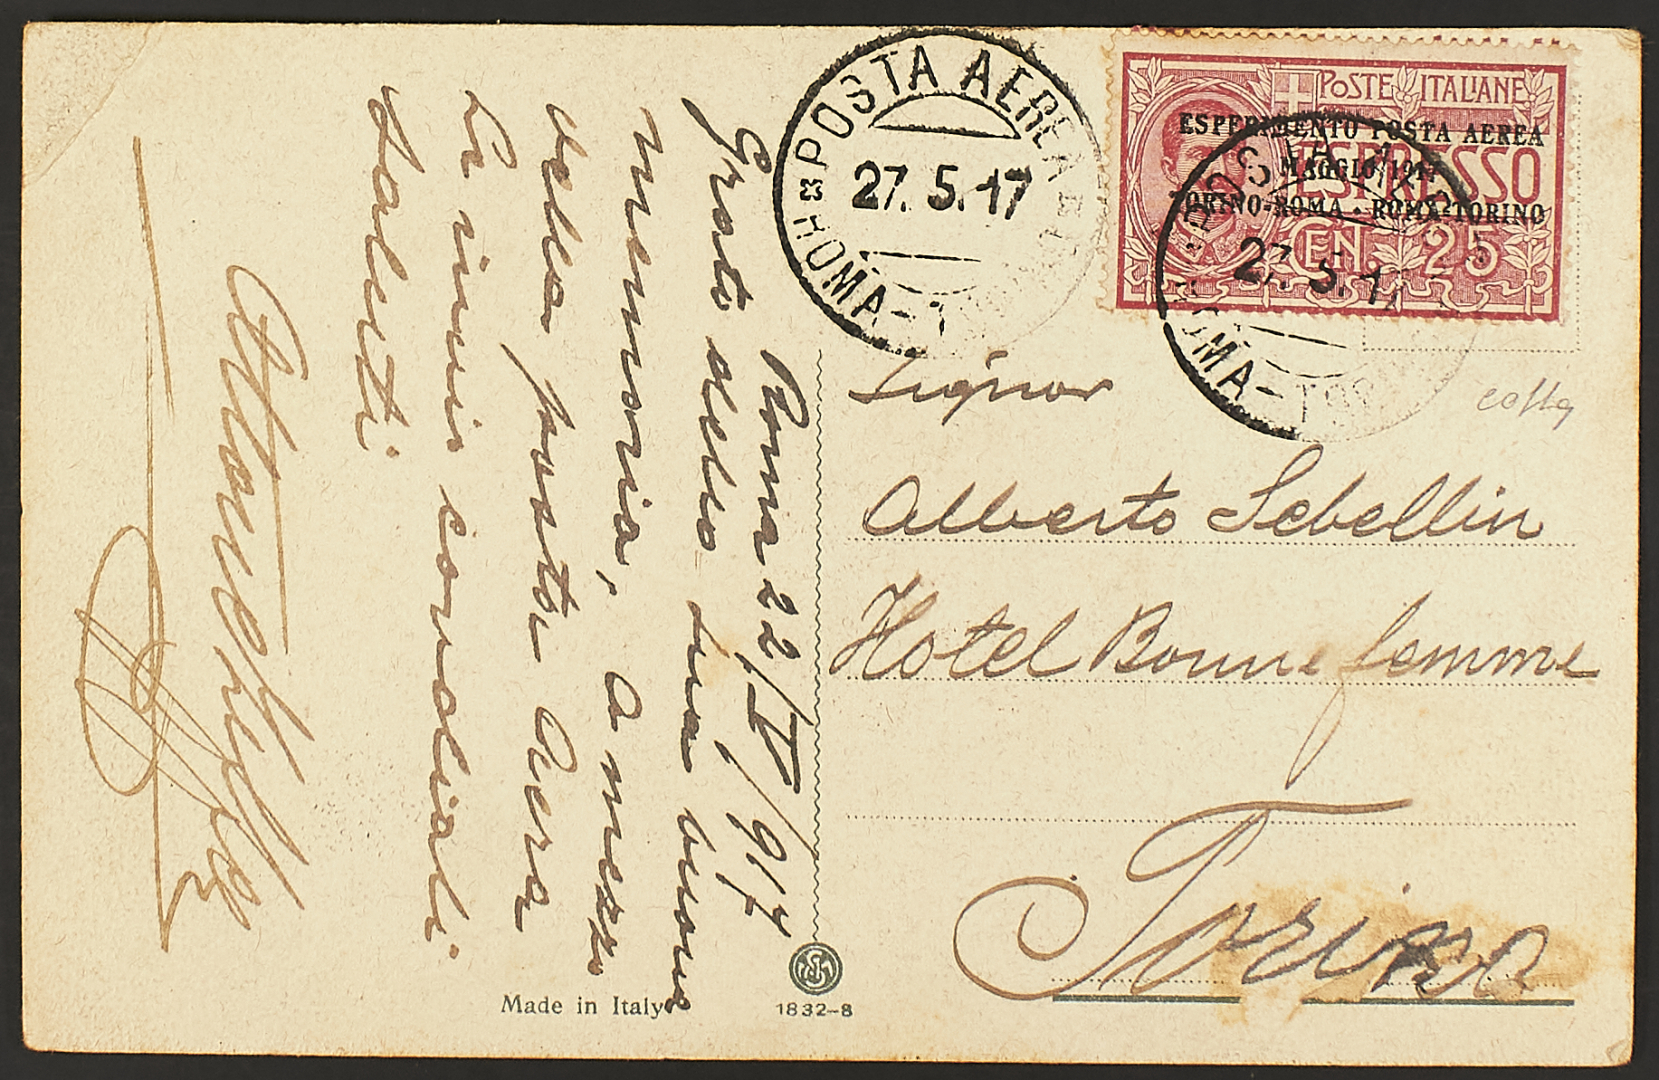 POSTA AEREA
27. 5. 17
ROMA - TORINO
POSTE ITALIANE
ESPERIMENTO POSTA AEREA
MAGGIO 1917
TORINO-ROMA · ROMA-TORINO
ESPRESSO
CEN. 25
POSTA AEREA
27. 5. 17
ROMA - TORINO
Roma 22/V/917
Grato della sua buona
memoria, a mezzo
della posta Aerea
Le invio cordiali
Saluti
Signor
Alberto Sebellin
Hotel Bonne femme
Torino
Made in Italy
1832-8